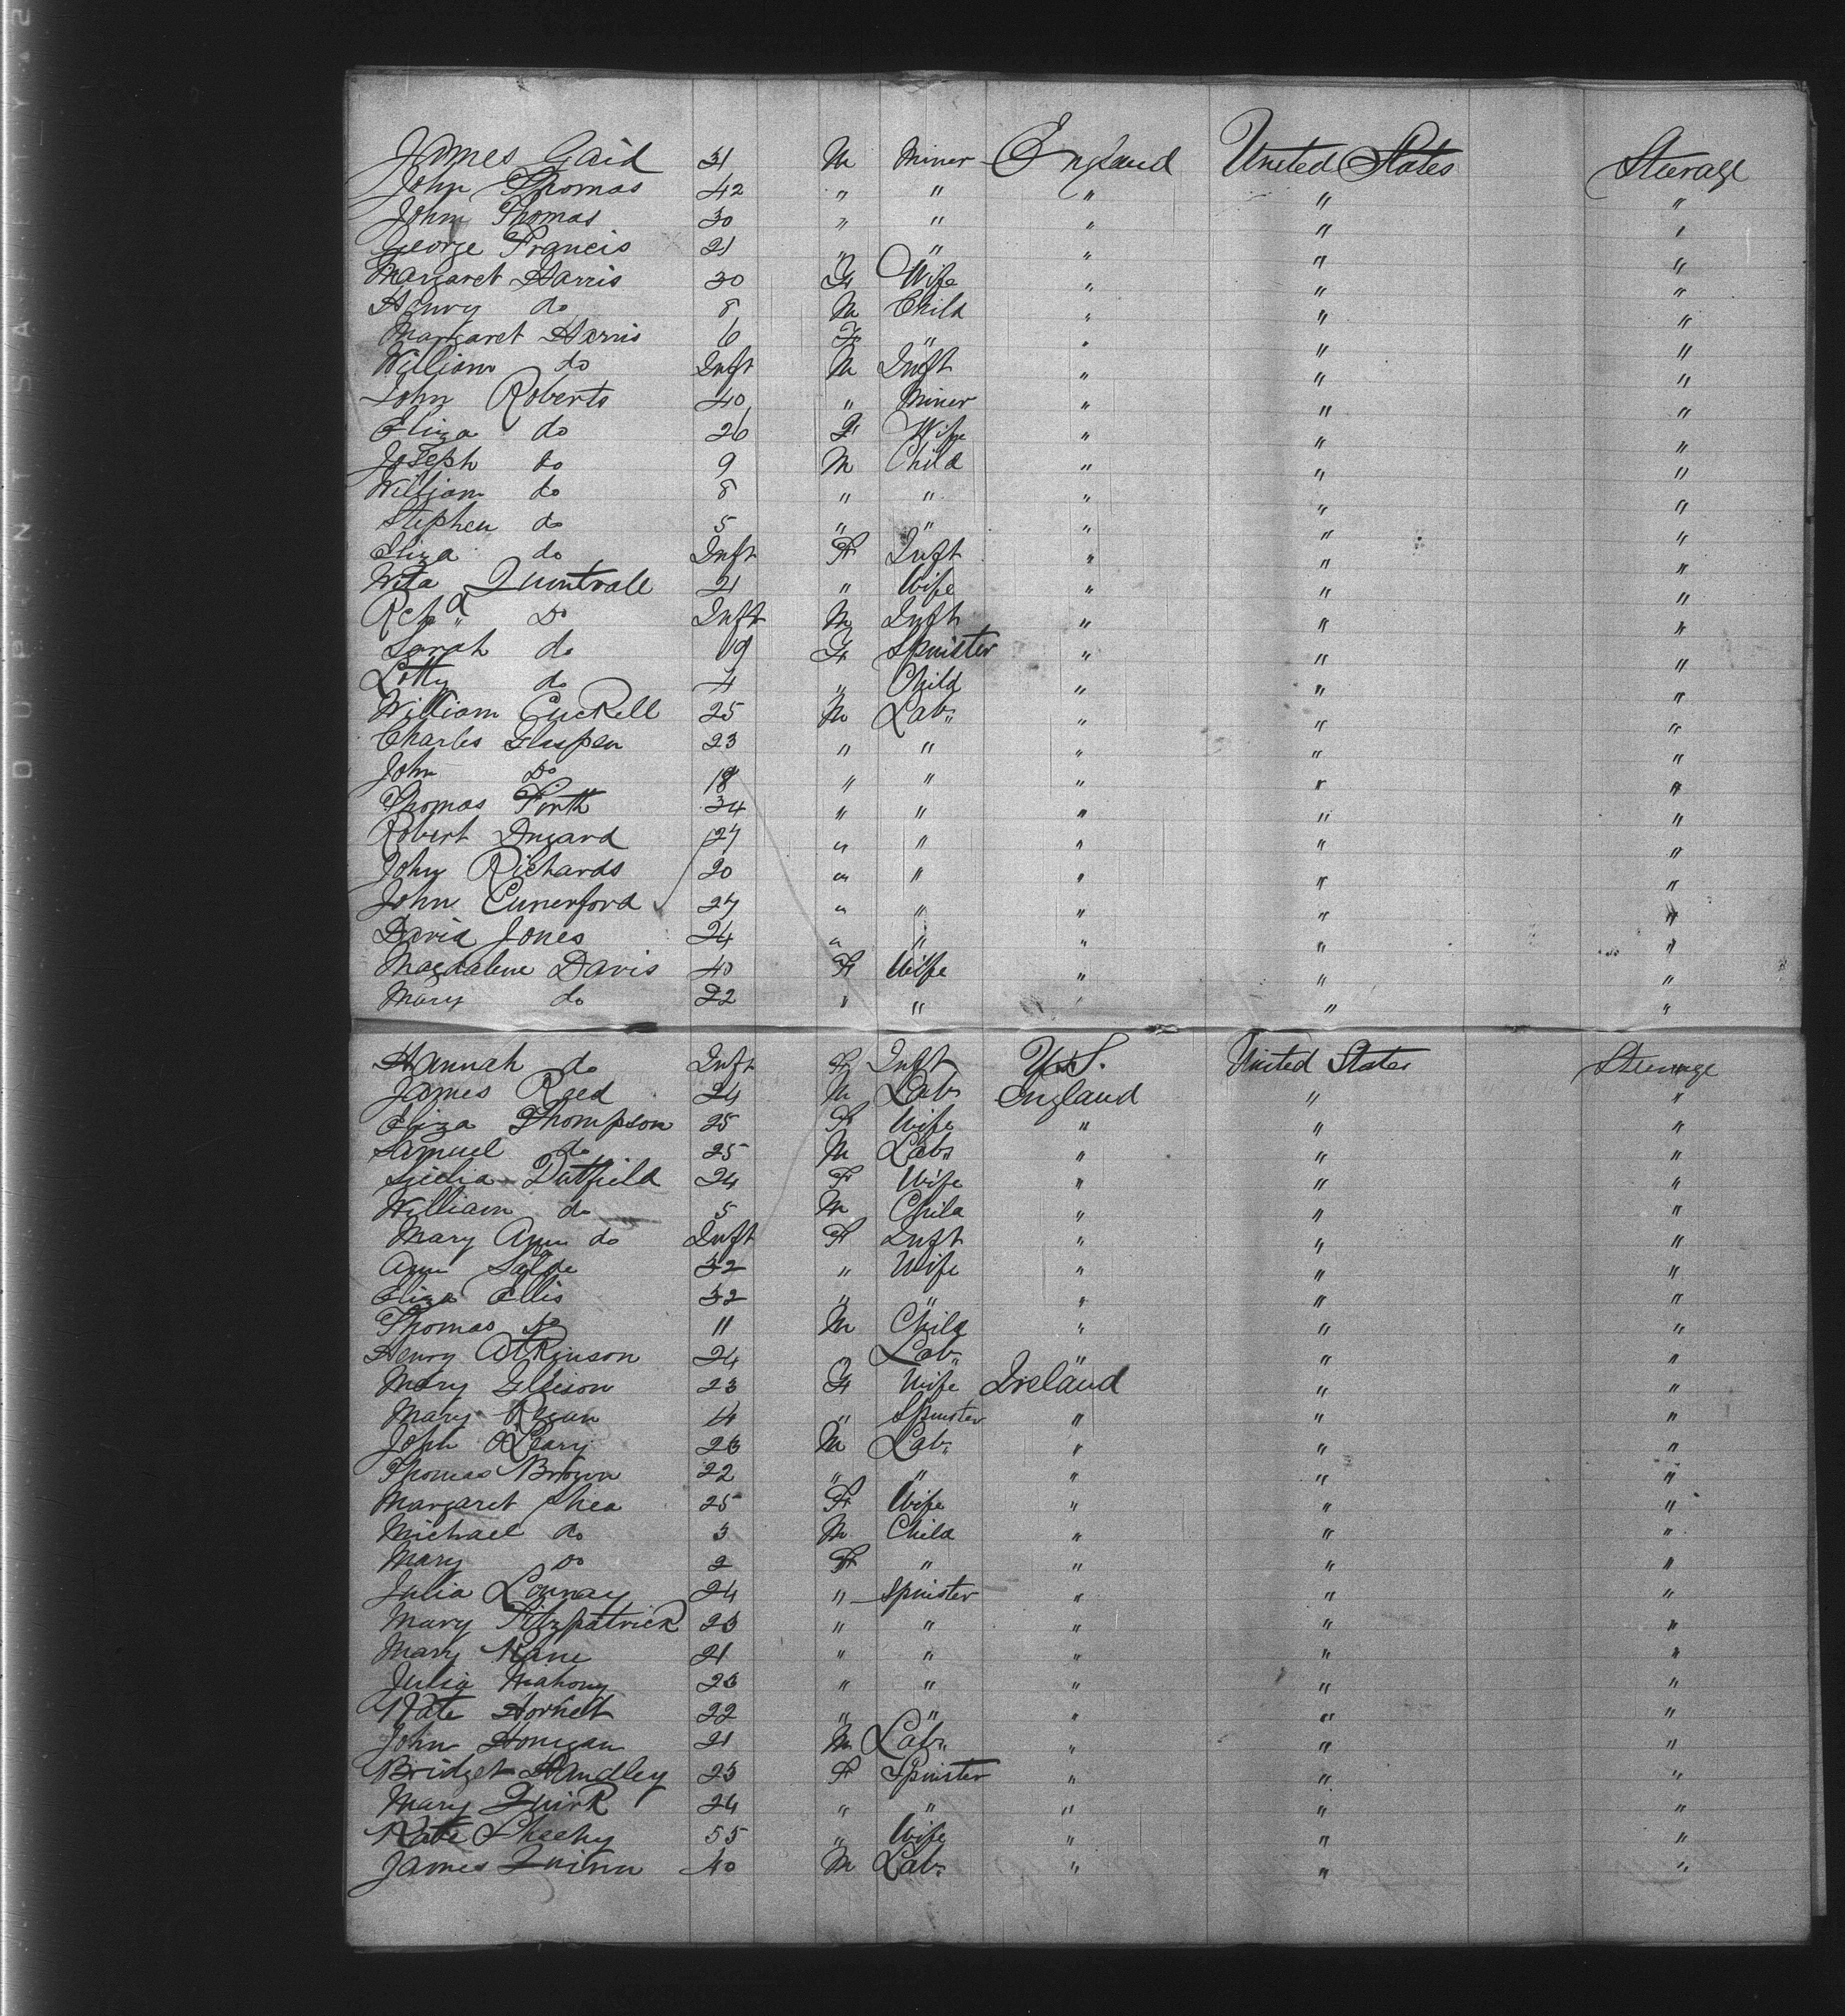 James Gaid 31 M Miner England United States Steerage
John Thomas 42 " " " " "
John Thomas 30 " " " " "
George Francis 21 " " " " "
Margaret Harris 30 F Wife " " "
Henry do 8 M Child " " "
Margaret Harris 6 F " " " "
William do Inft M Inft " " "
John Roberts 40 " Miner " " "
Eliza do 26 F Wife " " "
Joseph do 9 M Child " " "
William do 8 " " " " "
Stephen do 5 " " " " "
Eliza do Inft F Inft " " "
Wita Quintrall 21 " Wife " " "
Rchd Do Inft M Inft " " "
Sarah do 19 F Spinster " " "
Lotty do 4 " Child " " "
William Cuckell 25 M Lab " " "
Charles Glaspen 23 " " " " "
John Do 18 " " " " "
Thomas Firth 34 " " " " "
Robert Dugard 27 " " " " "
John Richards 20 " " " " "
John Cunerford 27 " " " " "
David Jones 24 " " " " "
Magdalene Davis 40 F Wife " " "
Mary do 22 " " " " "
Hannah do Inft F Inft U.S. United States Steerage
James Reed 24 M Lab England " "
Eliza Thompson 25 F Wife " " "
Samuel do 25 M Lab " " "
Dutfield 24 F Wife " " "
William do 5 M Child " " "
Mary Ann do Inft F Inft " " "
Ann 32 " Wife " " "
Eliza Ellis 32 " " " " "
Thomas do 11 M Child " " "
Henry Atkinson 24 " Lab " " "
Mary Gleison 23 F Wife Ireland " "
Mary Regan 14 " Spinster " " "
John O'Leary 23 M Lab " " "
Thomas Brown 22 " " " " "
Margaret Shea 25 F Wife " " "
Michael do 3 M Child " " "
Mary do 2 F " " " "
Julia Lounay 24 " Spinster " " "
Mary Fitzpatrick 23 " " " " "
Mary Kane 21 " " " " "
Julia Mahony 23 " " " " "
Kate Hornett 22 " " " " "
John Honigan 21 M Lab " " "
Bridget Handley 23 F Spinster " " "
Mary Quirk 24 " " " " "
Kate Sheehy 55 " Wife " " "
James Quinn 40 M Lab " " "